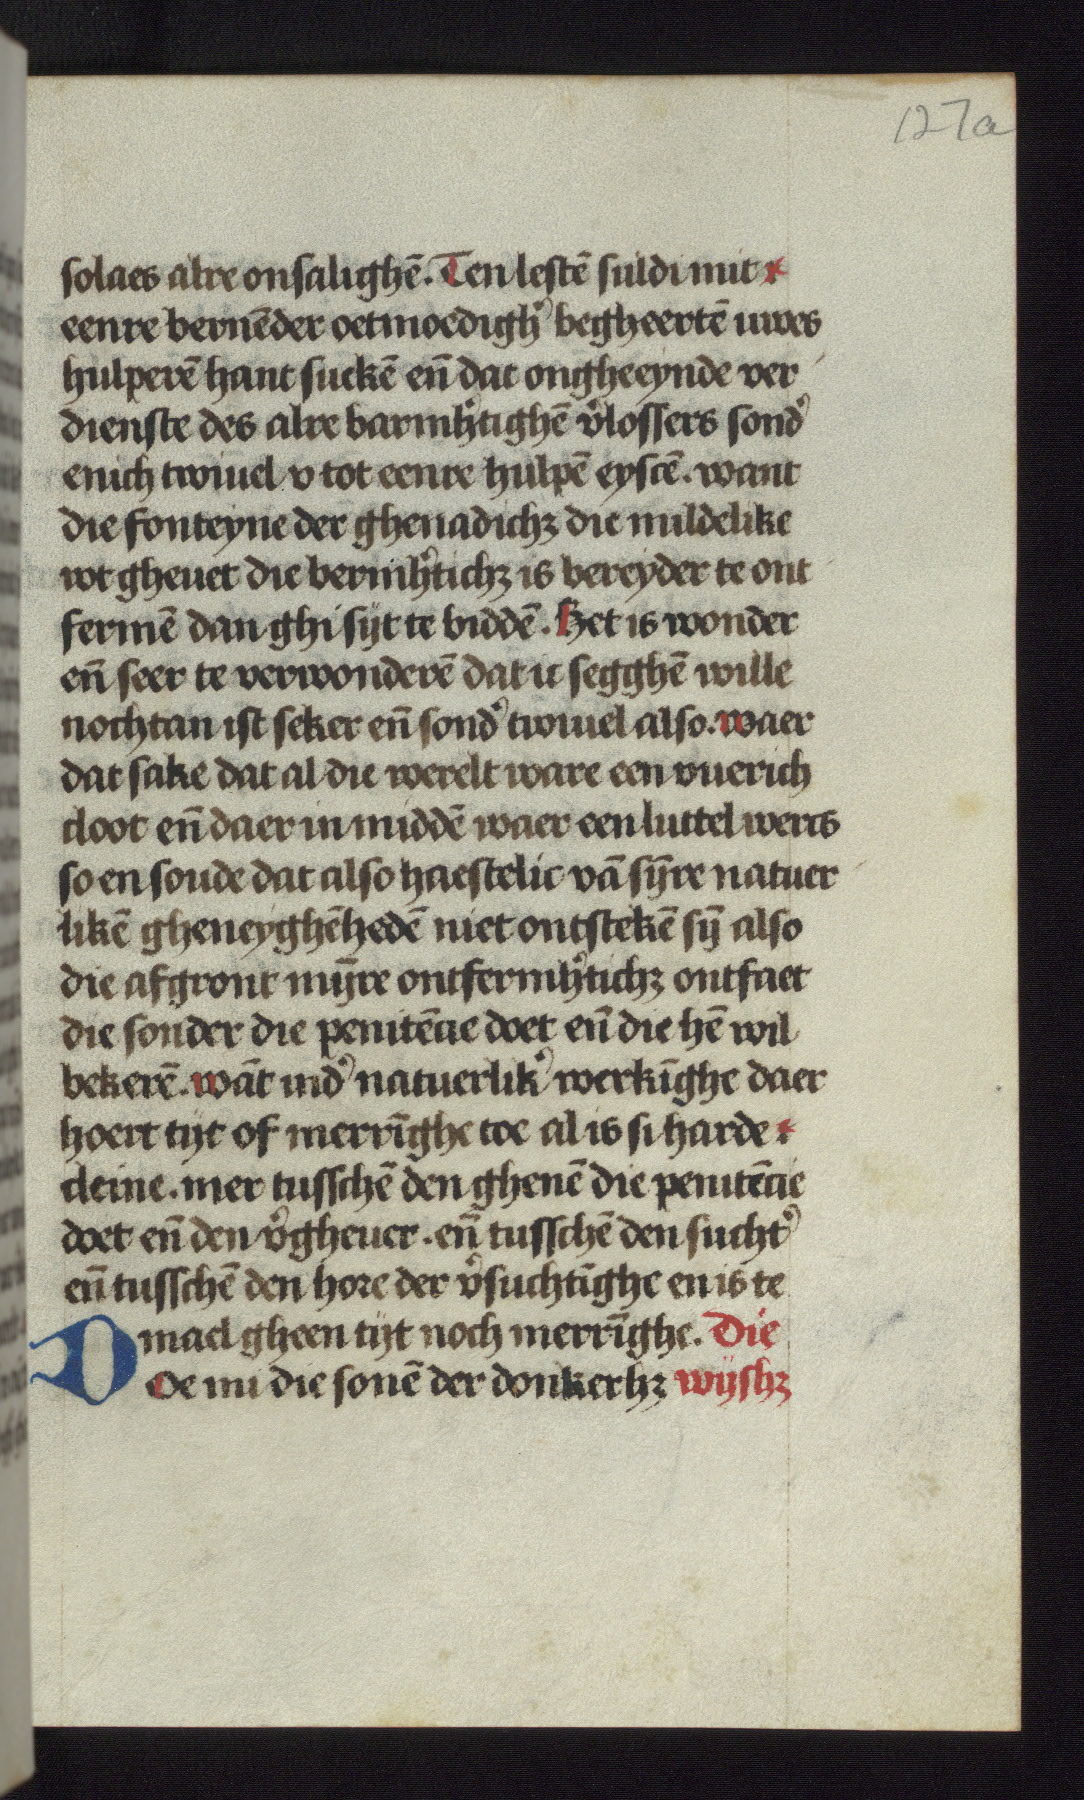 127a
solaes alre onsalighē. Ten lestē suldi mit
eenre bernēder oetmoedighͬ begheertē uwes
hulperē hant suckē en̄ dat ongheeynde ver
dienste des alre barmhͬtighē vͬlossers sondͬ
enich twiuel v tot eenre hulpē eyscē. want
die fonteyne der ghenadichꝫ die mildelike
wt gheuet die bermhͬtichꝫ is bereyder te ont
fermē dan ghi sijt te biddē. Het is wonder
en̄ seer te verwonderē dat ic segghē wille
nochtan ist seker en̄ sondͬ twiuel also. waer
dat sake dat al die werelt ware een vuerich
cloot en̄ daer in middē waer een luttel wercs
so en soude dat also haestelic vā sijn̄re natuer
likē gheneyghēhedē niet ontstekē sijn̄ also
die afgront mijn̄re ontfermhͬtichꝫ ontfaet
die sonder die penitēcie doet en̄ die hē wil
bekerē. wāt indͬ natuerlikͬ werkīghe daer
hoert tijt of merrīghe toe al is si harde
cleine. mer tusschē den ghenē die penitēcie
doet en̄ den vͬgheuer. en̄ tusschē den suchtͬ
en̄ tusschē den hore der vͬsuchtīghe en is te
mael gheen tijt noch merrīghe. Die
DOe nu die sonē der donkerhꝫ wijshꝫ